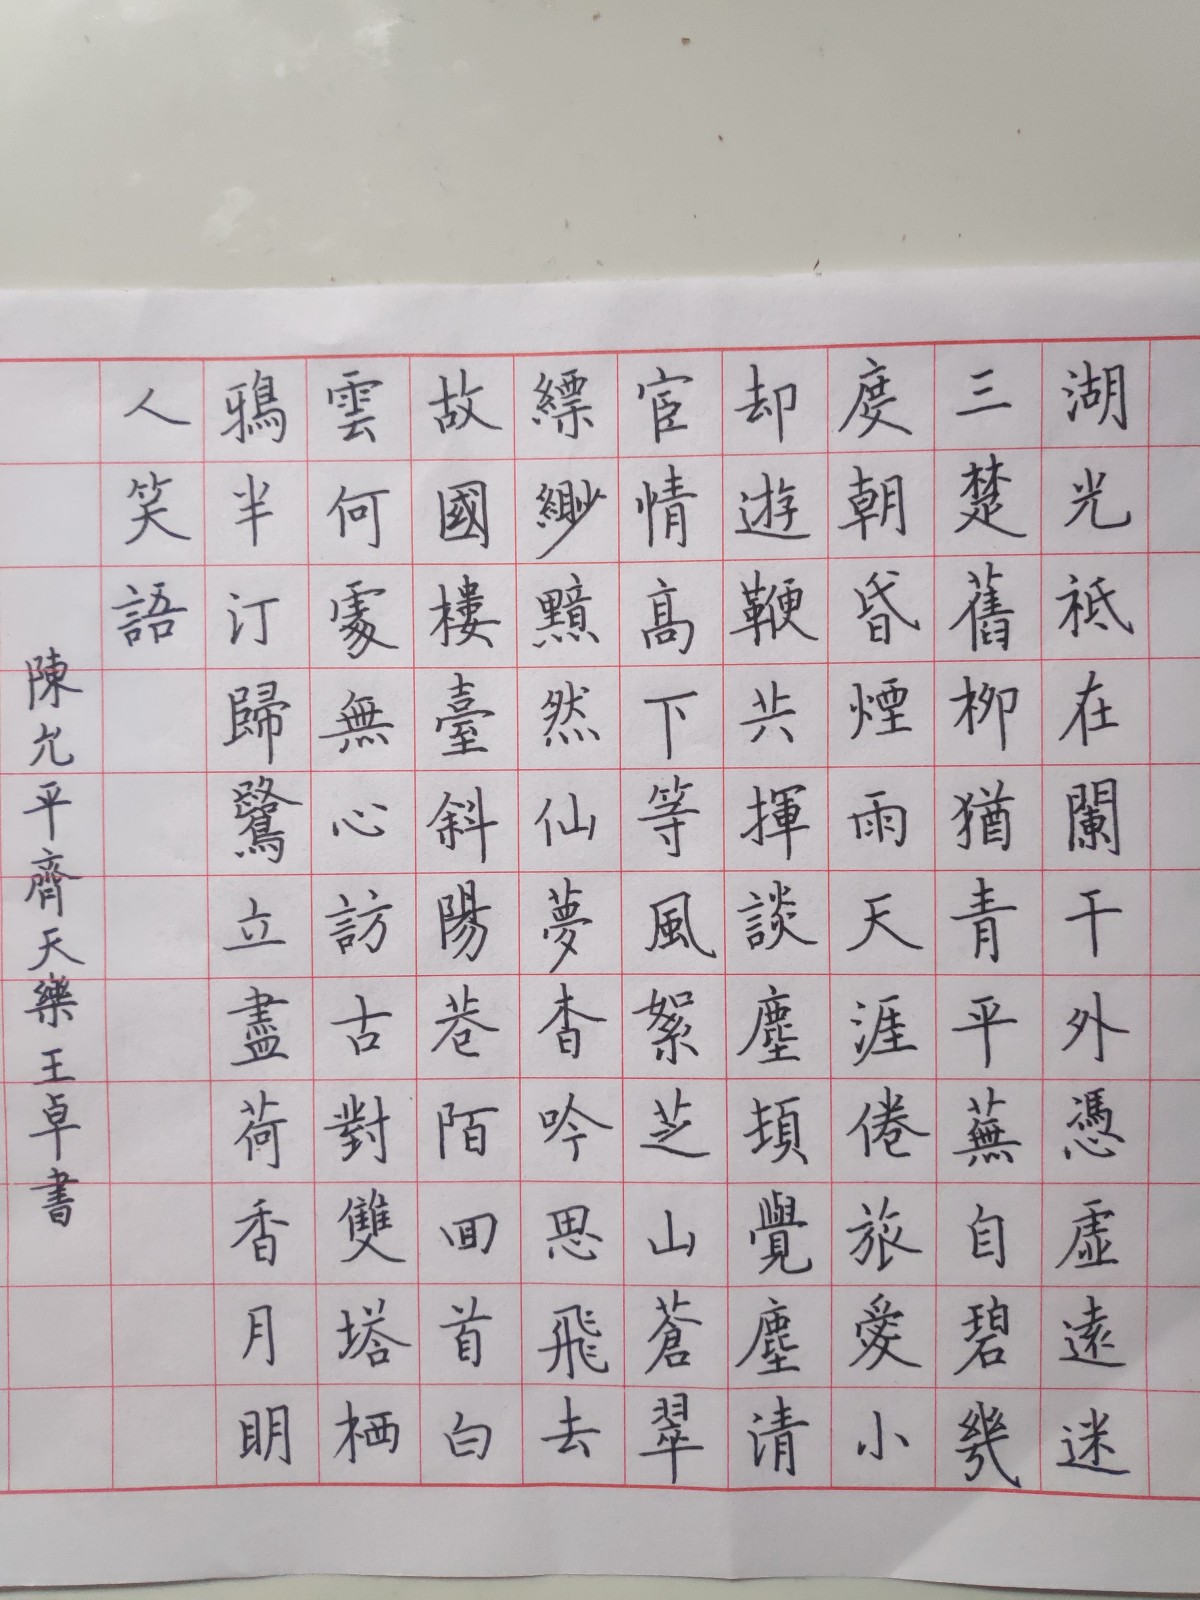 湖光祇在闌干外憑虛遠迷
三楚舊柳猶青平蕪自碧幾
度朝昏煙雨天涯倦旅愛小
却遊鞭共揮談塵頓覺塵清
宦情高下等風絮芝山蒼翠
縹緲黯然仙夢杳吟思飛去
故國樓臺斜陽巷陌回首白
雲何處無心訪古對雙塔栖
鴉半汀歸鷺立盡荷香月明
人笑語
陳允平齊天樂王卓書